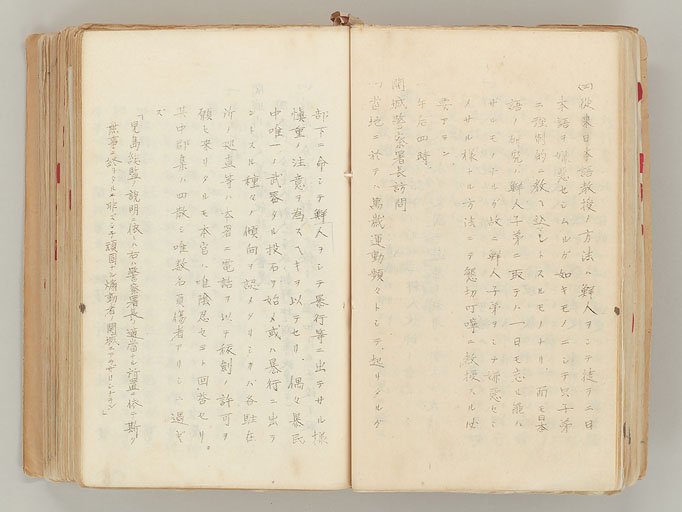 四従来日本語教授ノ方法ハ鮮人ヲシテ徒ラニ日
本語ヲ嫌悪セシムルガ如キモノニシテ只子弟
ニ強制的ニ教ヘ込マントスルモノナリ 而モ日本
語ノ研究ハ鮮人子弟ニ取テハ一日モ忘ル可ハ
サルモノナルガ故ニ鮮人子弟ヲシテ嫌悪セシ
メサル様ナル方法ニテ懇切叮嚀ニ教授スル必
要アラン
午后四時
開城警察署長訪問
一、当地ニ於テハ萬歳運動頻々トシテ起リタルガ
部下ニ命シテ鮮人ヲシテ暴行等ニ出テサル様
慎重ノ注意ヲ為スヘキヲ以テセリ 偶々暴民
中唯一ノ武器タル投石ヲ始メ或ハ暴行ニ出テ
ントスル種々ノ傾向ヲ認メタリシカバ各駐在
所ノ巡査等ハ本署ニ電話ヲ以テ抜剣ノ許可ヲ
願ヒ来リタルモ本官ハ唯隠忍セヨト回答セリ。
其中群集ハ四散シ唯数名負傷者アリシニ過ギ
ズ
「児島総監ノ説明ニ依レハ右ハ警察署長ノ適当ナル処置ニ依テ斯ク
無事ニ終リタルニ非ズシテ頑固ナル煽動者ハ開城ニナカリシナラン」